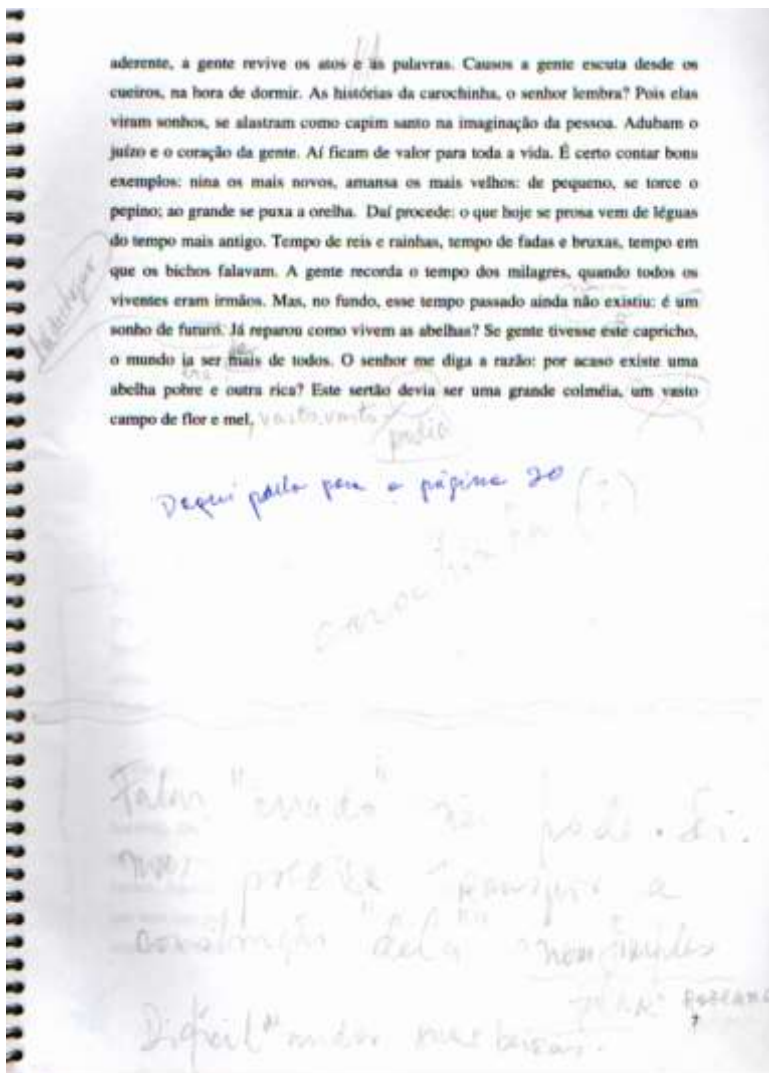 aderente, a gente revive os atos e as palavras. Causos a gente escuta desde os
cueiros, na hora de dormir. As histórias da carochinha, o senhor lembra? Pois elas
viram sonhos, se alastram como capim santo na imaginação da pessoa. Adubam o
juízo e o coração da gente. Aí ficam de valor para toda a vida. É certo contar bons
exemplos: nina os mais novos, amansa os mais velhos: de pequeno, se torce o
pepino; ao grande se puxa a orelha. Daí procede: o que hoje se prosa vem de léguas
do tempo mais antigo. Tempo de reis e rainhas, tempo de fadas e bruxas, tempo em
que os bichos falavam. A gente recorda o tempo dos milagres, quando todos os
viventes eram irmãos. Mas, no fundo, esse tempo passado ainda não existiu: é um
sonho de futuro. Já reparou como vivem as abelhas? Se gente tivesse este capricho,
o mundo ia ser mais de todos. O senhor me diga a razão: por acaso existe uma
abelha pobre e outra rica? Este sertão devia ser uma grande colméia, um vasto
campo de flor e mel, vasto, vasto
podia
Daqui para a página 20
(?)
Falar "errado" não pode
precisa a
construção dela
Difícil
7